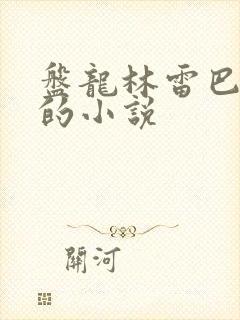 盤龍林雷巴
的小說
關河